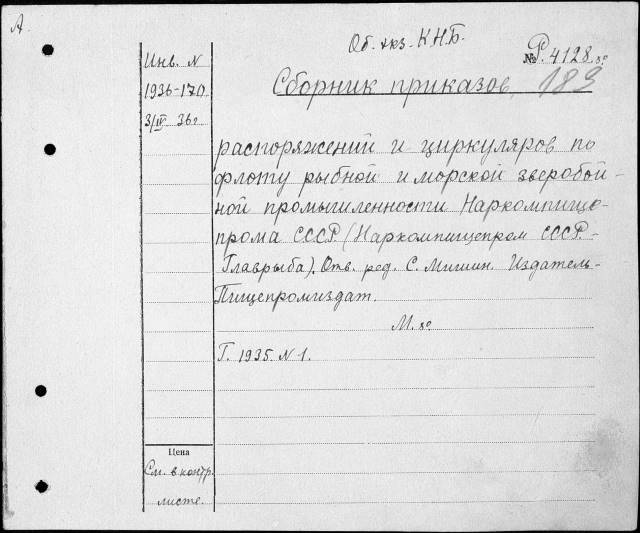 А.
Об. экз. К.Н.Б.
№ Р. 4128. 8º
189
Инв. N
1936-170
3/IV 36г
Сборник приказов,
распоряжений и циркуляров по
флоту рыбной и морской зверобой-
ной промышленности Наркомпище-
прома СССР. (Наркомпищепром СССР. -
Главрыба). Отв. ред. С. Мишин. Издатель-
Пищепромиздат.
М. 8º
Г. 1935. N 1.
Цена
См. в контр.
листе.